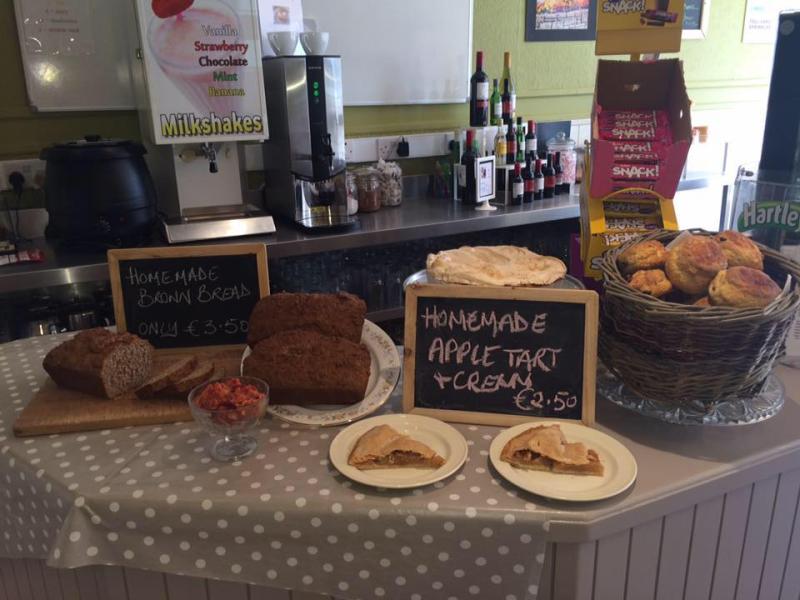 Vanilla
Strawberry
Chocolate
Mint
Banana
Milkshakes
SNACK!
SNACK!
SNACK!
SNACK!
SNACK!
Hartley
HOMEMADE
BROWN BREAD
ONLY €3.50
HOMEMADE
APPLE TART
+ CREAM
€2.50